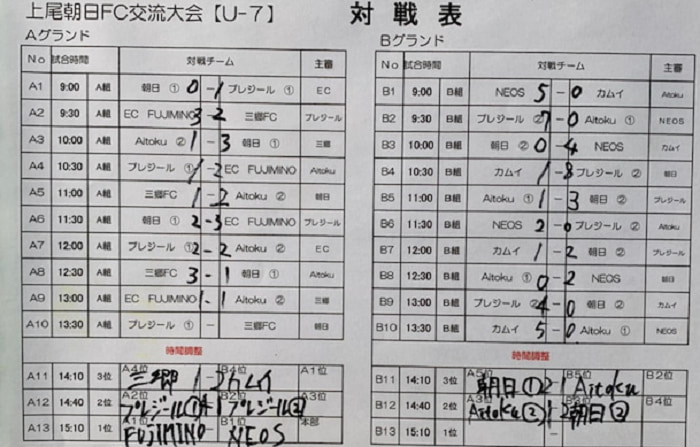 上尾朝日FC交流大会【U-7】 対戦表
Aグランド
No 試合時間 対戦チーム 主審
A1 9:00 A組 朝日 ① 0-1 プレジール ① EC
A2 9:30 A組 EC FUJIMINO 3-2 三郷FC プレジール
A3 10:00 A組 Aitoku ② 1-3 朝日 ① 三郷
A4 10:30 A組 プレジール ① 1-2 EC FUJIMINO Aitoku
A5 11:00 A組 三郷FC 1-2 Aitoku ② 朝日
A6 11:30 A組 朝日 ① 2-3 EC FUJIMINO プレジール
A7 12:00 A組 プレジール ① 2-2 Aitoku ② EC
A8 12:30 A組 三郷FC 3-1 朝日 ① Aitoku
A9 13:00 A組 EC FUJIMINO 1-1 Aitoku ② 三郷
A10 13:30 A組 プレジール ① - 三郷FC 朝日
時間調整
A11 14:10 3位 A4位 三郷 1-2 B4位 カムイ A1位
A12 14:40 2位 A2位 プレジール① 1 B2位 プレジール② A3位
A13 15:10 1位 A1位 FUJIMINO - B1位 NEOS 本部
Bグランド
No 試合時間 対戦チーム 主審
B1 9:00 B組 NEOS 5-0 カムイ Aitoku
B2 9:30 B組 プレジール ② 7-0 Aitoku ① NEOS
B3 10:00 B組 朝日 ② 0-4 NEOS カムイ
B4 10:30 B組 カムイ 1-8 プレジール ② 朝日
B5 11:00 B組 Aitoku ① 1-3 朝日 ② プレジール
B6 11:30 B組 NEOS 2-0 プレジール ② Aitoku
B7 12:00 B組 カムイ 1-2 朝日 ② プレジール
B8 12:30 B組 Aitoku ① 0-2 NEOS 朝日
B9 13:00 B組 プレジール ② 4-0 朝日 ② カムイ
B10 13:30 B組 カムイ 5-0 Aitoku ① NEOS
時間調整
B11 14:10 3位 A5位 朝日① 2-1 B5位 Aitoku B2位
B12 14:40 2位 A3位 Aitoku② 1-2 B3位 朝日② B4位
B13 15:10 1位 -